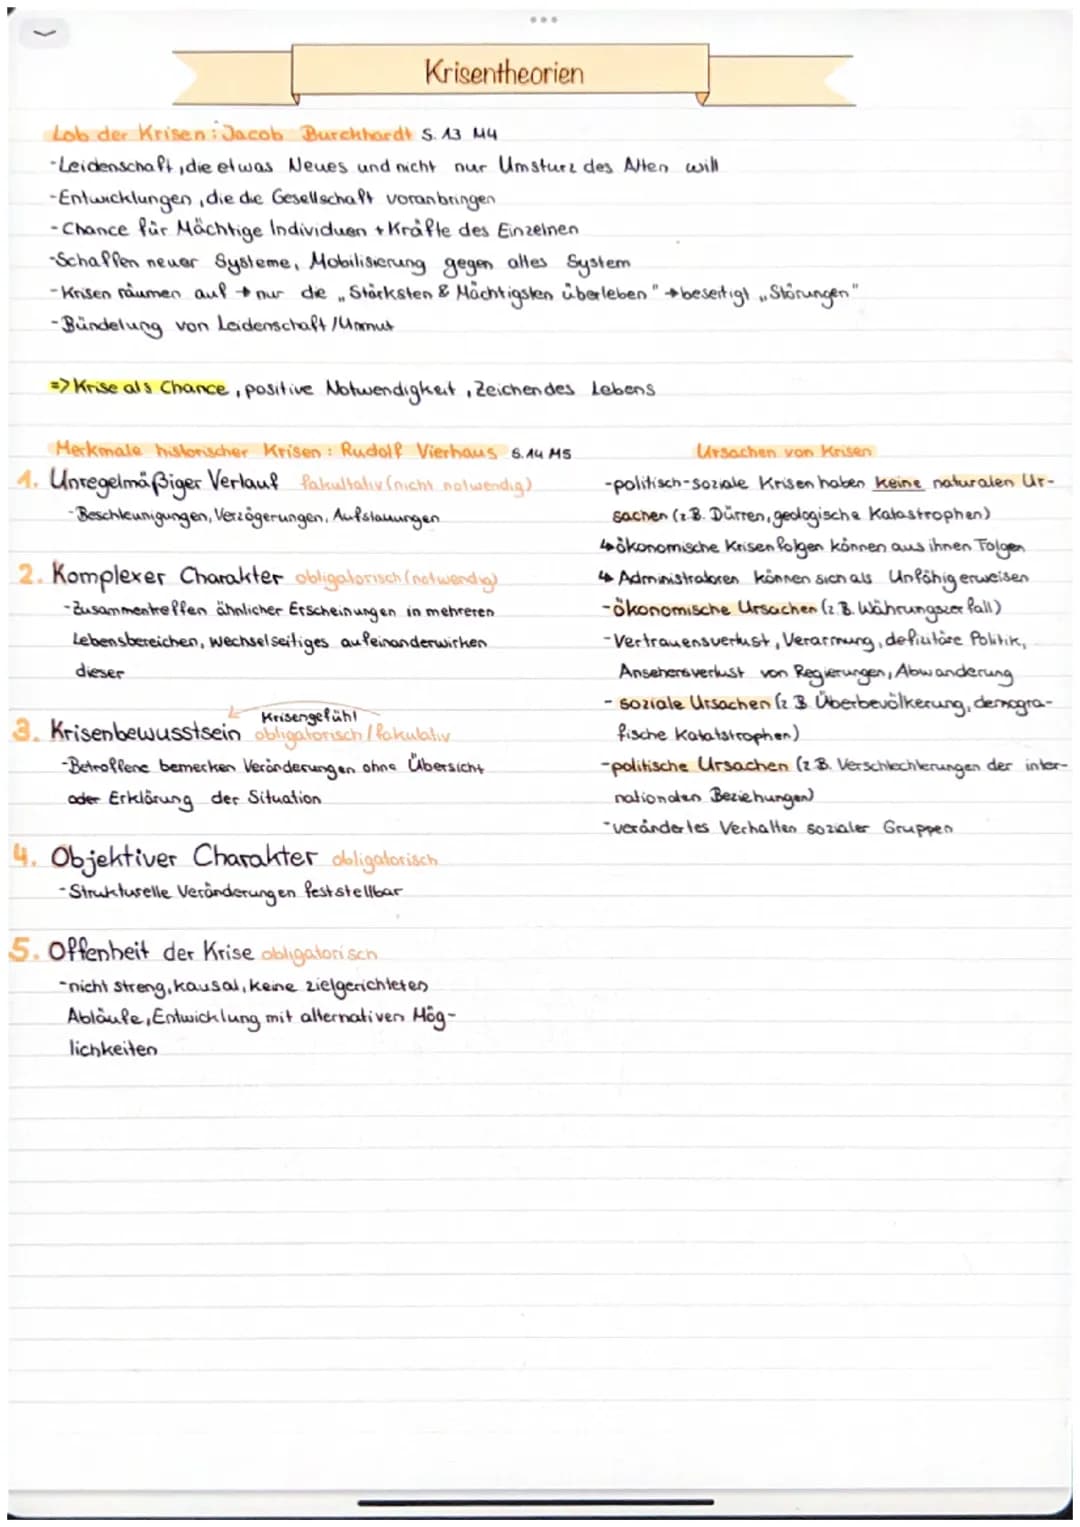 Krisentheorien
Lob der Krisen: Jacob Burckhardt S. 13 M4
-Leidenschaft, die etwas Neues und nicht nur Umsturz des Alten will
-Entwicklungen, die die Gesellschaft voranbringen
-Chance für Mächtige Individuen + Kräfte des Einzelnen
-Schaffen neuer Systeme, Mobilisierung gegen altes System
-Krisen räumen auf → nur die „Stärksten & Mächtigsten überleben" → beseitigt „Störungen"
-Bündelung von Leidenschaft/Unmut
=> Krise als Chance, positive Notwendigkeit, Zeichen des Lebens
Merkmale historischer Krisen: Rudolf Vierhaus S. 14 M5
1. Unregelmäßiger Verlauf fakultativ (nicht notwendig)
-Beschleunigungen, Verzögerungen, Aufstauungen
2. Komplexer Charakter obligatorisch (notwendig)
-Zusammentreffen ähnlicher Erscheinungen in mehreren
Lebensbereichen, wechselseitiges aufeinanderwirken
dieser
Krisengefühl
3. Krisenbewusstsein obligatorisch/fakulativ
-Betroffene bemerken Veränderungen ohne Übersicht
oder Erklärung der Situation
4. Objektiver Charakter obligatorisch
-Strukturelle Veränderungen feststellbar
5. Offenheit der Krise obligatorisch
-nicht streng, kausal, keine zielgerichteten
Abläufe, Entwicklung mit alternativen Mög-
lichkeiten
Ursachen von Krisen
-politisch-soziale Krisen haben keine naturalen Ur-
sachen (z.B. Dürren, geologische Katastrophen)
↳ ökonomische Krisenfolgen können aus ihnen Folgen
↳ Administratoren können sich als Unfähig erweisen
-ökonomische Ursachen (z.B. Währungszerfall)
-Vertrauensverlust, Verarmung, defizitäre Politik,
Ansehensverlust von Regierungen, Abwanderung
- soziale Ursachen (z.B. Überbevölkerung, demogra-
fische Katatstrophen)
-politische Ursachen (z.B. Verschlechterungen der inter-
nationalen Beziehungen)
-verändertes Verhalten sozialer Gruppen